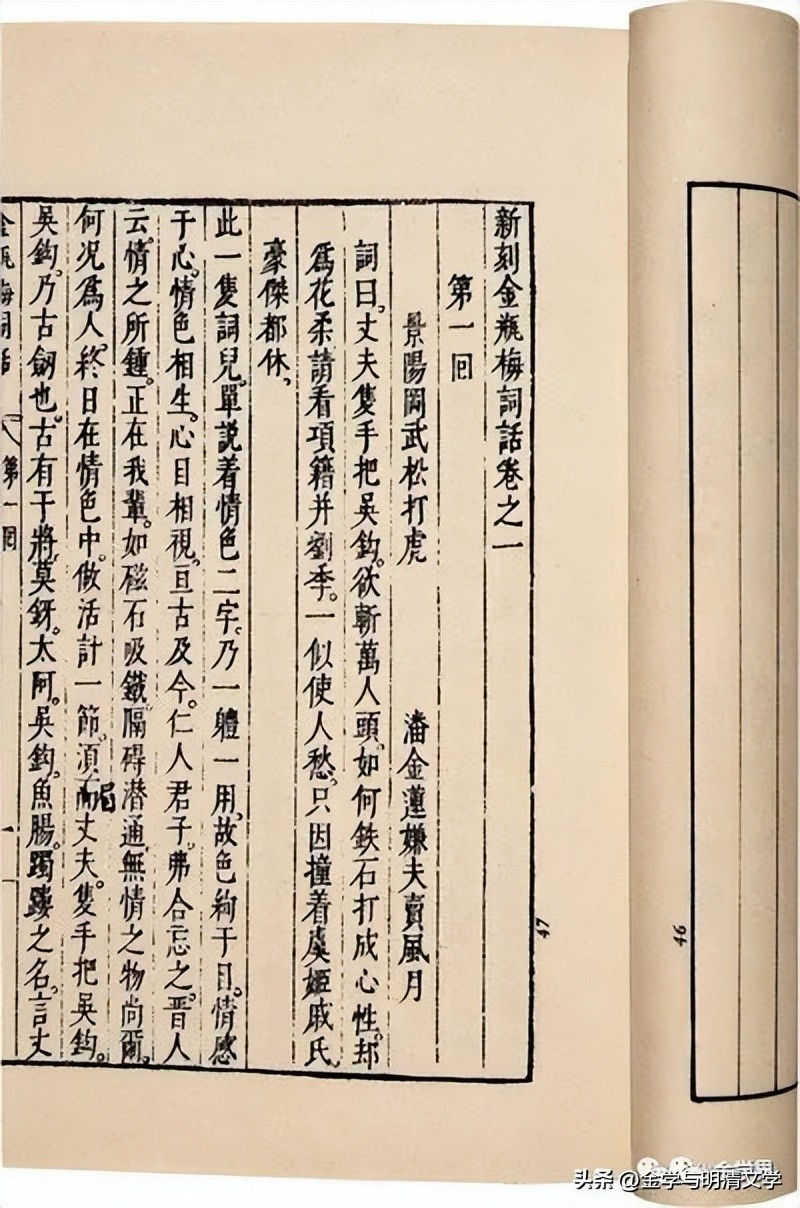 新刻金瓶梅詞話卷之一
第一回
景陽岡武松打虎　潘金蓮嫌夫賣風月
詞曰丈夫隻手把吳鈎。欲斬萬人頭。如何鉄石打成心性。却
爲花柔請看項籍并劉季。一似使人愁。只因撞着虞姬戚氏
豪傑都休、
此一隻詞兒。單説着情色二字。乃一體一用。故色絢于目。情感
于心。情色相生。心目相視。亘古及今。仁人君子。弗合忘之。晋人
云。情之所鍾。正在我輩。如磁石吸鐵。隔碍潜通。無情之物尚爾。
何况爲人。終日在情色中。做活計一節。須 丈夫。隻手把吳鈎。
吳鈎。乃古劒也。古有干將莫鋣。太阿。吳鈎。魚腸。躅䠱之名。言丈
金瓶梅詞話 第一回 一
47
46
头条 @金学与明清文学